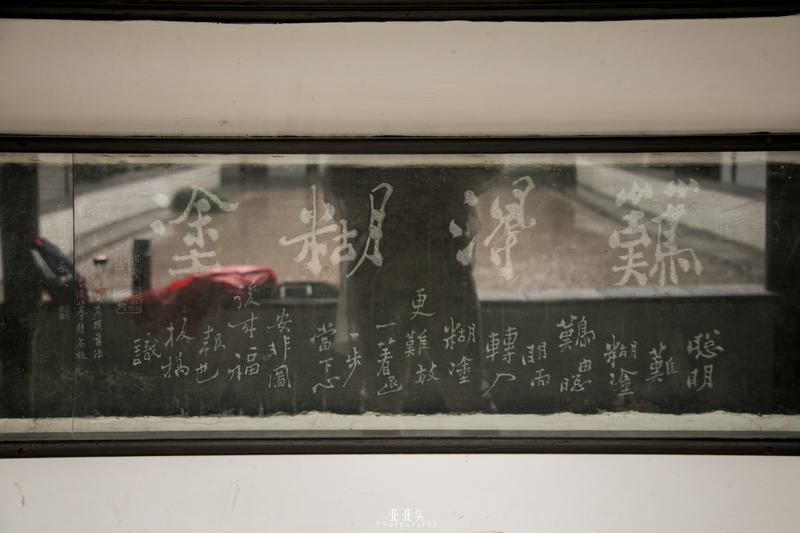 難得糊塗
聰明
難
糊塗
難由聰
明而
轉入
糊塗
更難放
一著退
一步
當下心
安非圖
後來福
報也
板橋
識
亚亚头
PHOTOGRAPHY